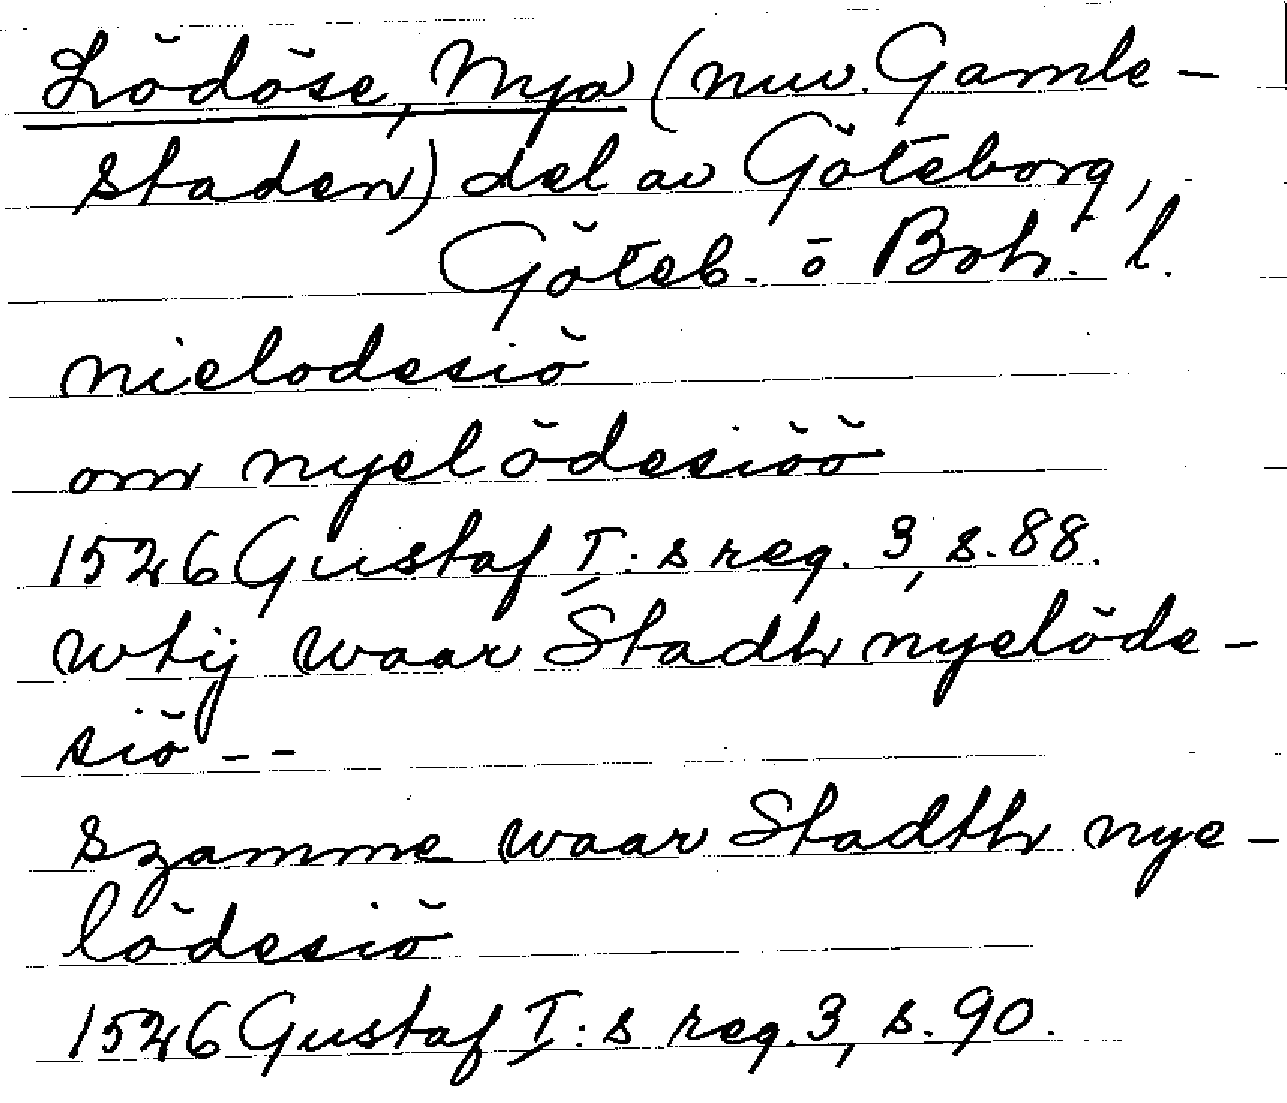 Lödöse, Nya (nuv. Gamle-
staden) del av Göteborg,
Göteb. o Boh. l.
nielodesiö
om nyelödesiöö
1526 Gustaf I:s reg. 3, s. 88.
wtij waar Stadh nyelöde-
siö - -
szamme waar Stadth nye-
lödesiö
1526 Gustaf I:s reg. 3, s. 90.